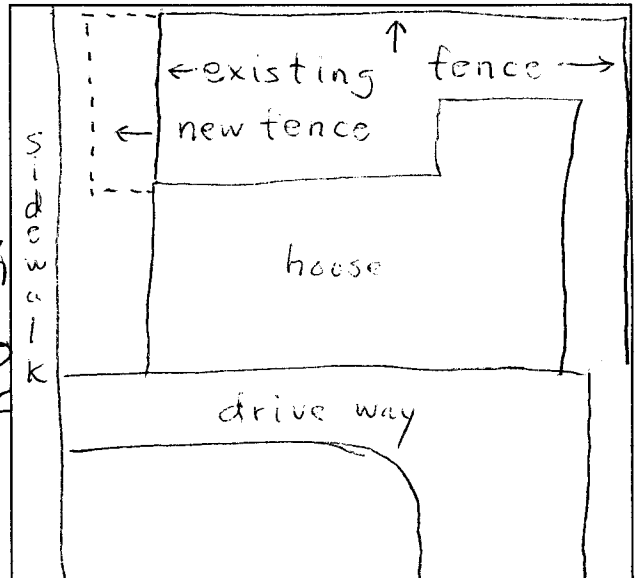 existing fence
new fence
sidewalk
house
drive way